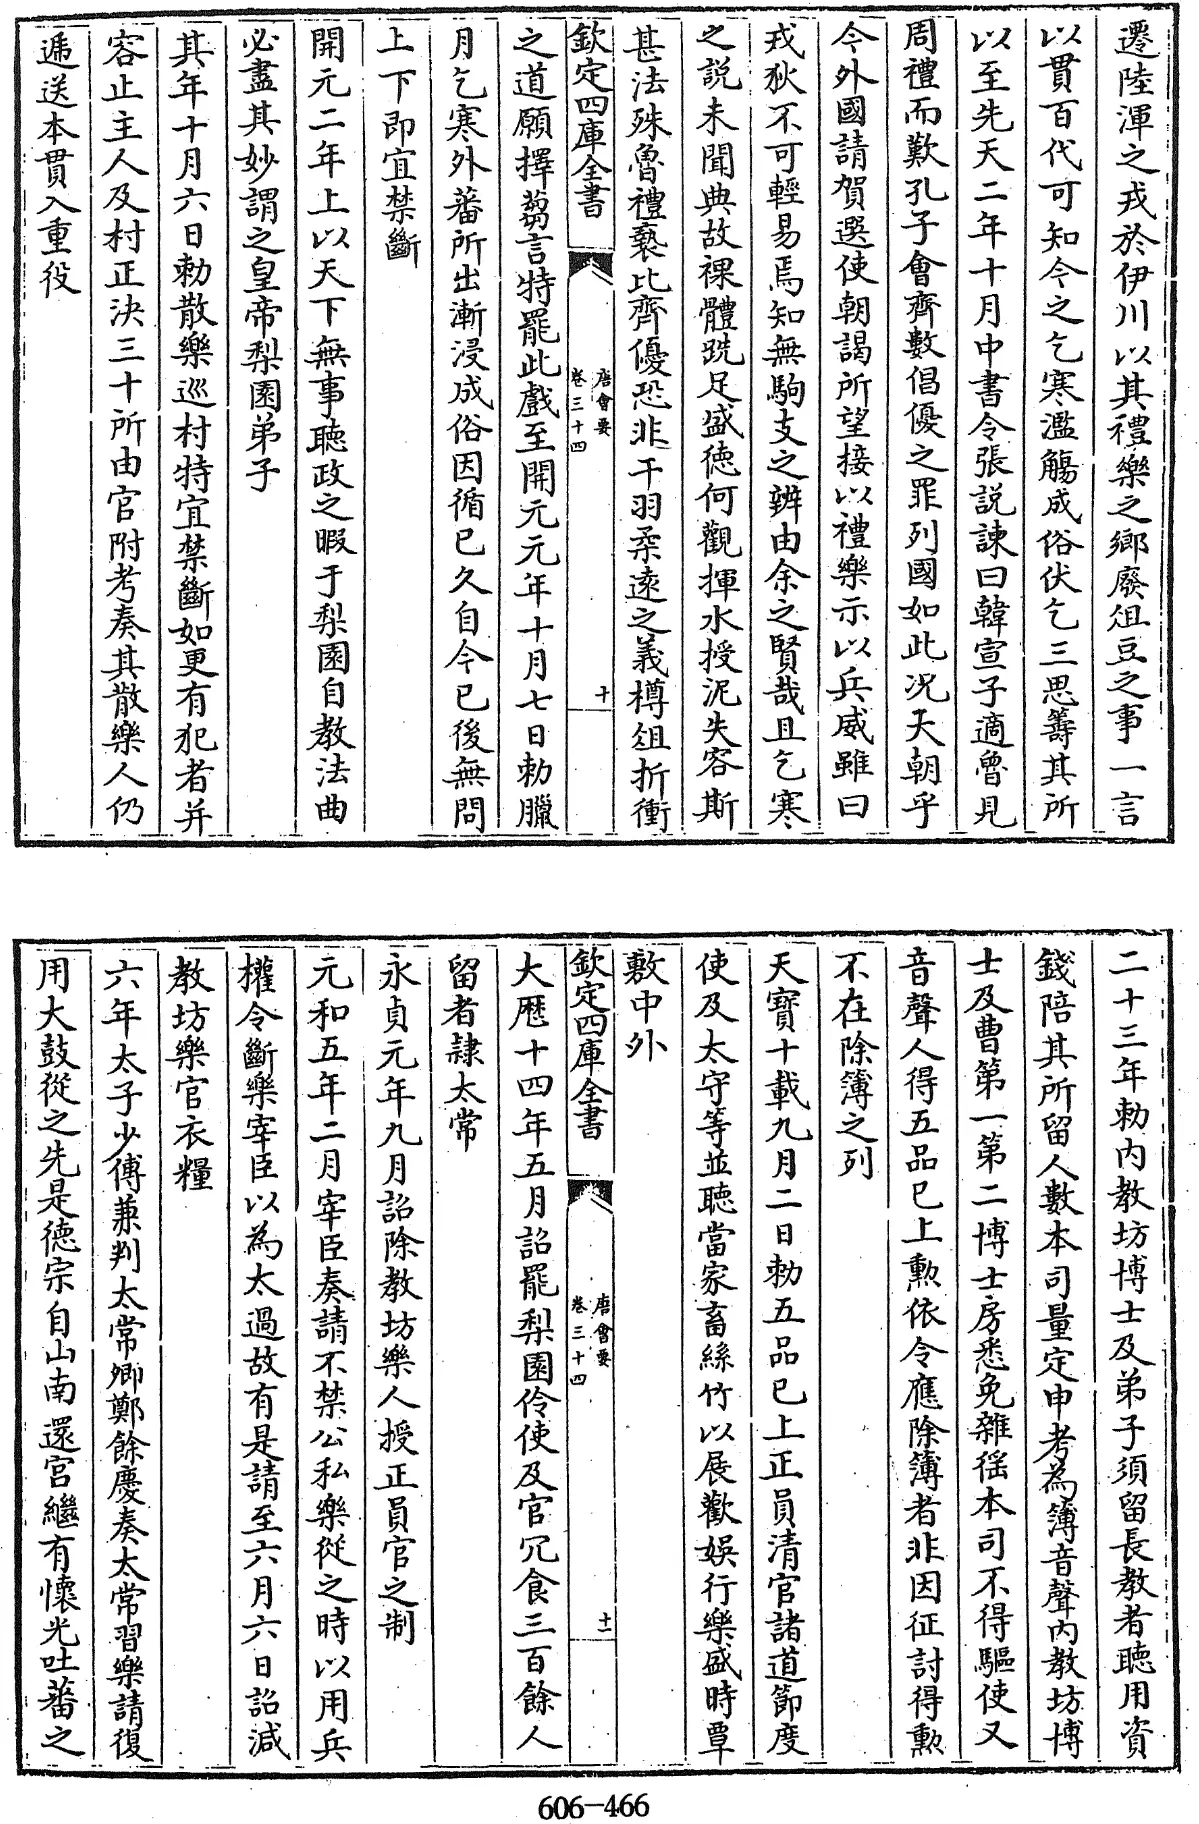 遷陸渾之戎於伊川以其禮樂之鄉廢俎豆之事一言
以貫百代可知今之乞寒濫觴成俗伏乞三思籌其所
以至先天二年十月中書令張説諫曰韓宣子適魯見
周禮而歎孔子會齊數倡優之罪列國如此况天朝乎
今外國請賀選使朝謁所望接以禮樂示以兵威雖曰
戎狄不可輕易焉知無駒支之辨由余之賢哉且乞寒
之説未聞典故裸體跣足盛徳何觀揮水投泥失容斯
甚法殊魯禮褻比齊優恐非干羽柔逺之義樽俎折衝
欽定四庫全書
唐會要
卷三十四
十
之道願擇芻言特罷此戲至開元元年十月七日勅臘
月乞寒外蕃所出漸浸成俗因循已久自今已後無問
上下即宜禁斷
開元二年上以天下無事聽政之暇于梨園自教法曲
必盡其妙謂之皇帝梨園弟子
其年十月六日勅散樂巡村特宜禁斷如更有犯者并
容止主人及村正決三十所由官附考奏其散樂人仍
遞送本貫入重役
二十三年勅内教坊博士及弟子須留長教者聽用資
錢陪其所留人數本司量定申考為簿音聲内教坊博
士及曹第一第二博士房悉免雜徭本司不得驅使又
音聲人得五品已上勲依令應除簿者非因征討得勲
不在除簿之列
天寶十載九月二日勅五品已上正員清官諸道節度
使及太守等並聽當家畜絲竹以展歡娛行樂盛時覃
敷中外
欽定四庫全書
唐會要
卷三十四
十一
大歴十四年五月詔罷梨園伶使及官冗食三百餘人
留者隷太常
永貞元年九月詔除教坊樂人授正員官之制
元和五年二月宰臣奏請不禁公私樂從之時以用兵
權令斷樂宰臣以為太過故有是請至六月六日詔減
教坊樂官衣糧
六年太子少傅兼判太常卿鄭餘慶奏太常習樂請復
用大鼓從之先是徳宗自山南還宮繼有懷光吐蕃之
606-466